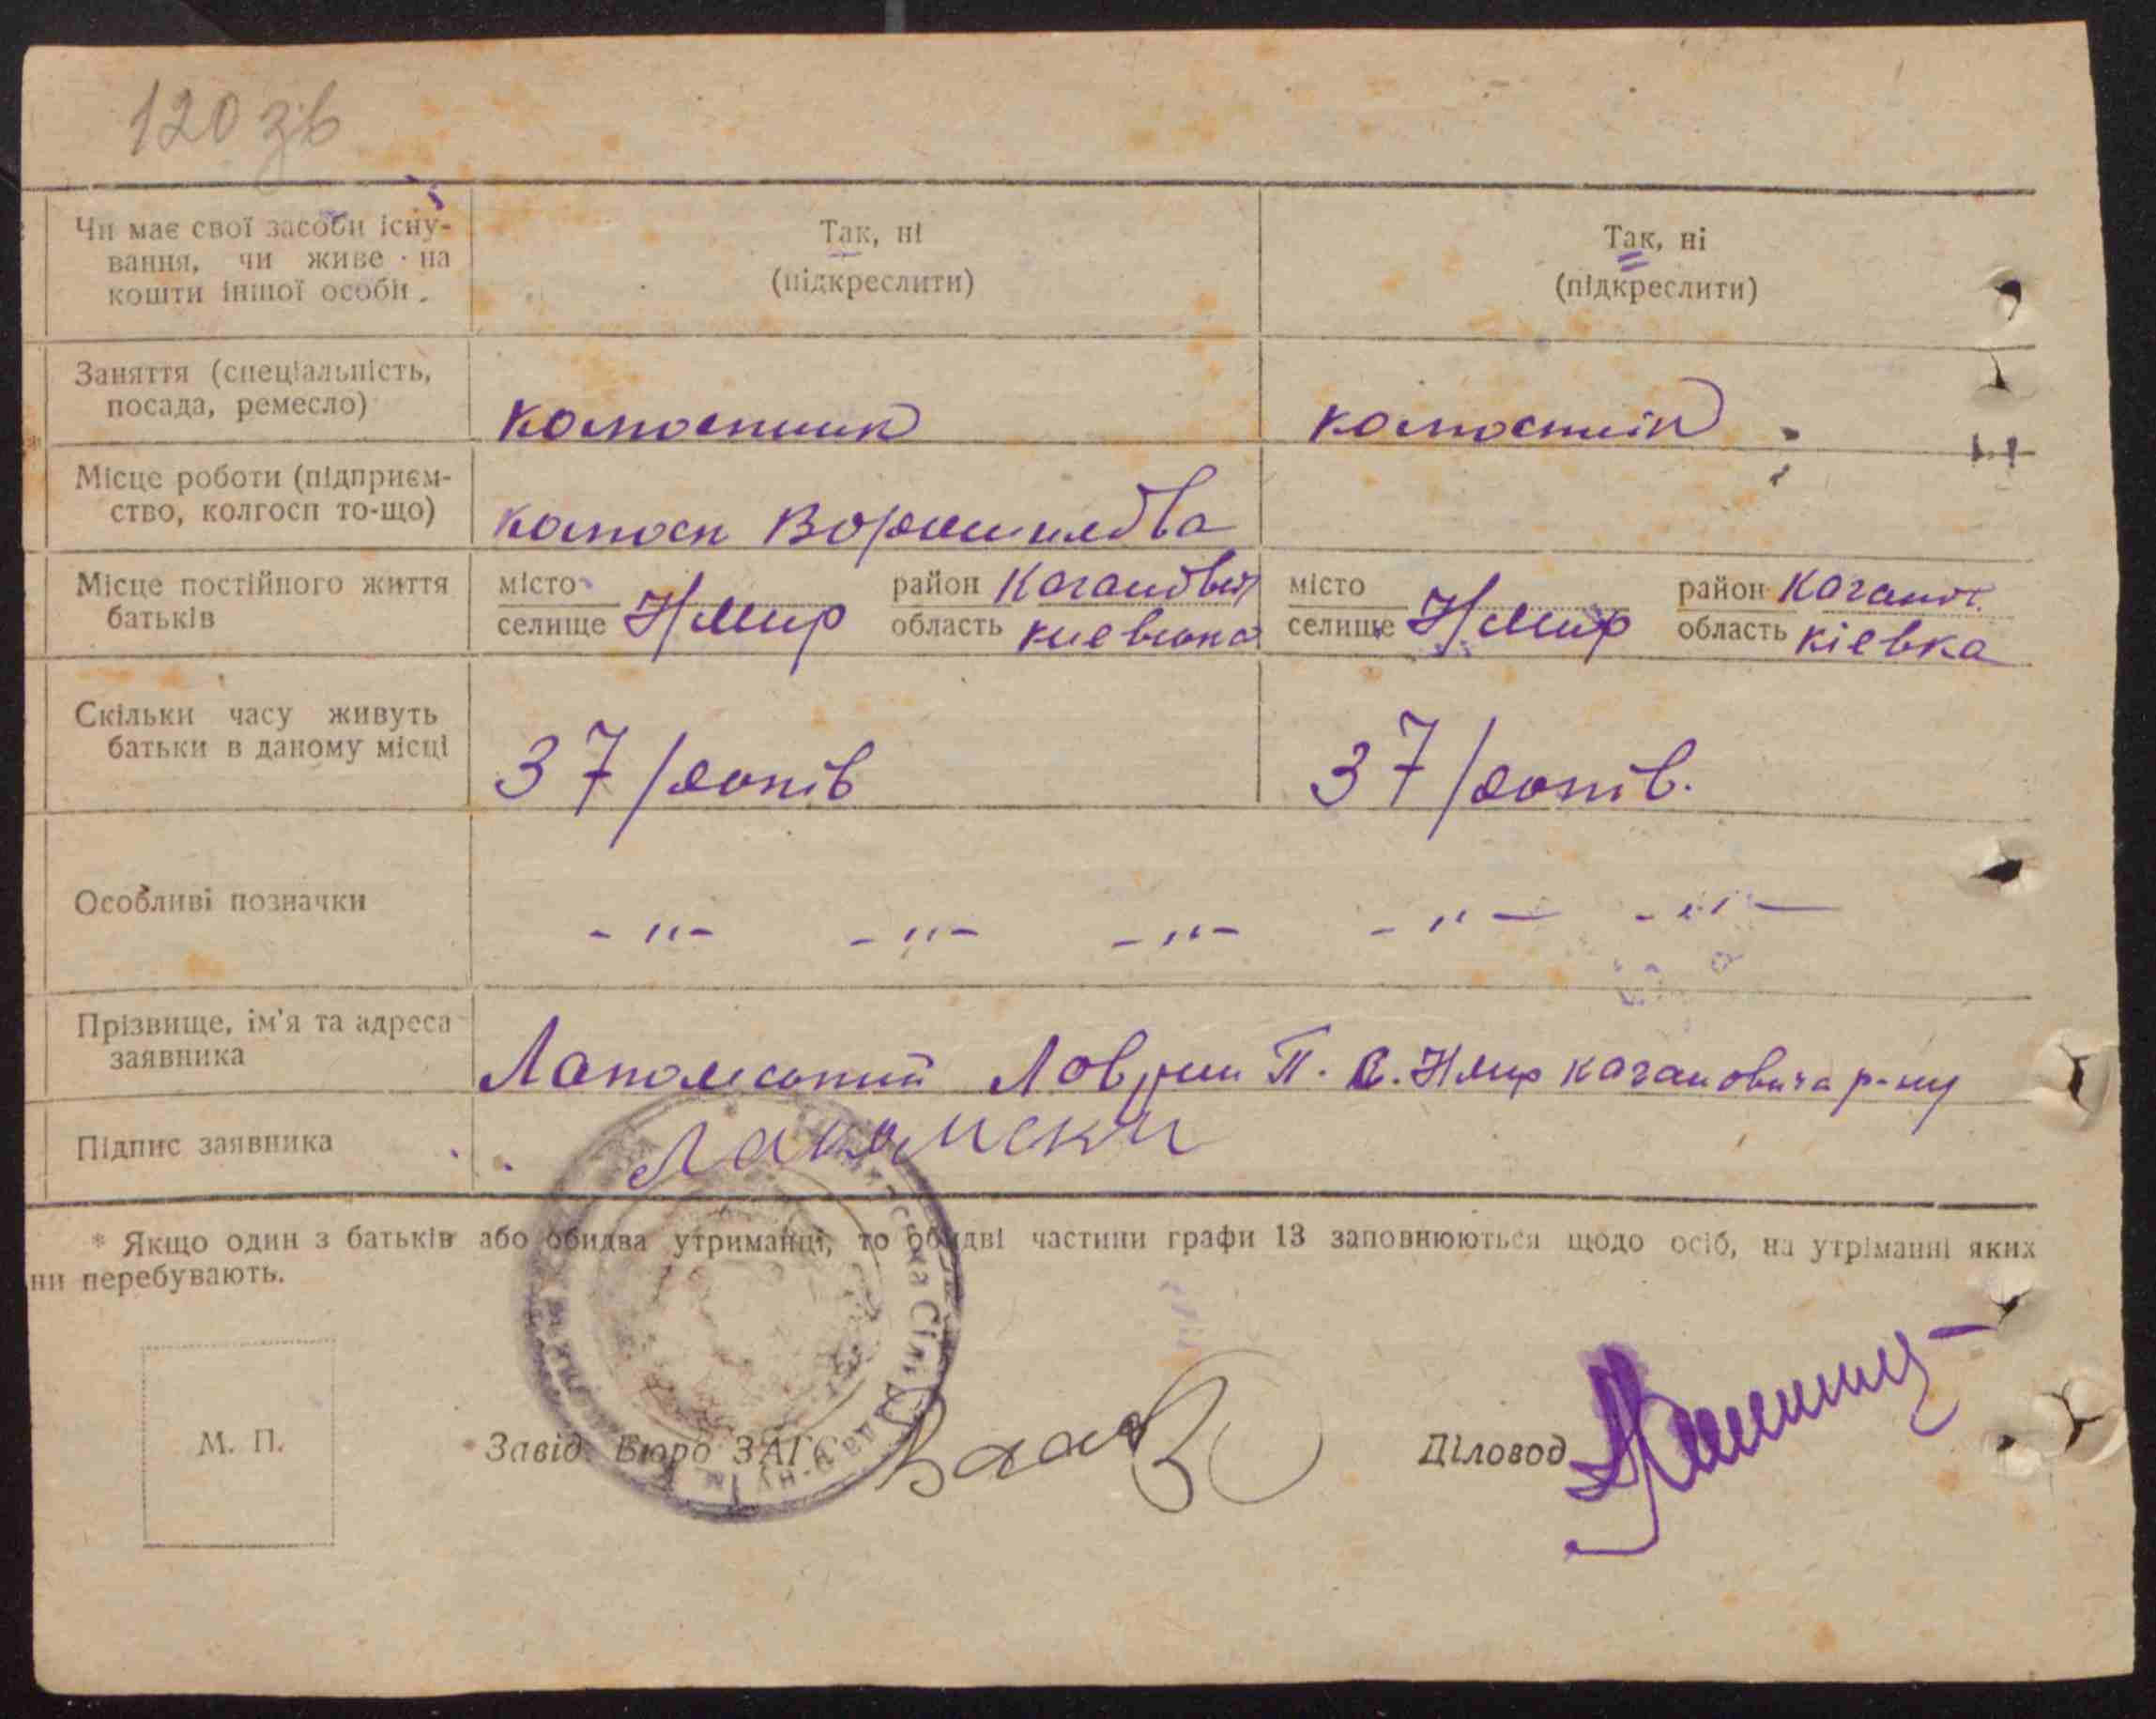 120 зв
Чи має свої засоби існу-
вання, чи живе на
кошти іншої особи.
Так, ні
(підкреслити)
Так, ні
(підкреслити)
Заняття (спеціальність,
посада, ремесло)
колгоспник
колгоспнік
Місце роботи (підприєм-
ство, колгосп то-що)
колгосп Ворошилова
Місце постійного життя
батьків
місто
селище
район
область
місто
селище
район Каганов.
область кіевка
Скільки часу живуть
батьки в даному місці
37/років
37/років.
Особливі позначки
- " - - " - - " - - " - - " -
Прізвище, ім'я та адреса
заявника
П. с. Кагановича р-ну
Підпис заявника
* Якщо один з батьків або обидва утриманці, то обидві частини графи 13 заповнюються щодо осіб, на утріманні яких
ни перебувають.
М. П.
Завід. Бюро ЗАГС
Діловод